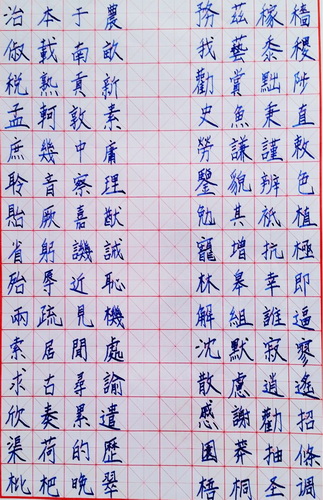 治本于農 務茲稼穡
俶載南畝 我藝黍稷
稅熟貢新 勸賞黜陟
孟軻敦素 史魚秉直
庶幾中庸 勞謙謹敕
聆音察理 鑒貌辨色
貽厥嘉猷 勉其祗植
省躬譏誡 寵增抗極
殆辱近恥 林皋幸即
兩疏見機 解組誰逼
索居聞處 沈默寂寥
求古尋論 散慮逍遙
欣奏累遣 慼謝勸招
渠荷的歷 園莽抽條
枇杷晚翠 梧桐圣调